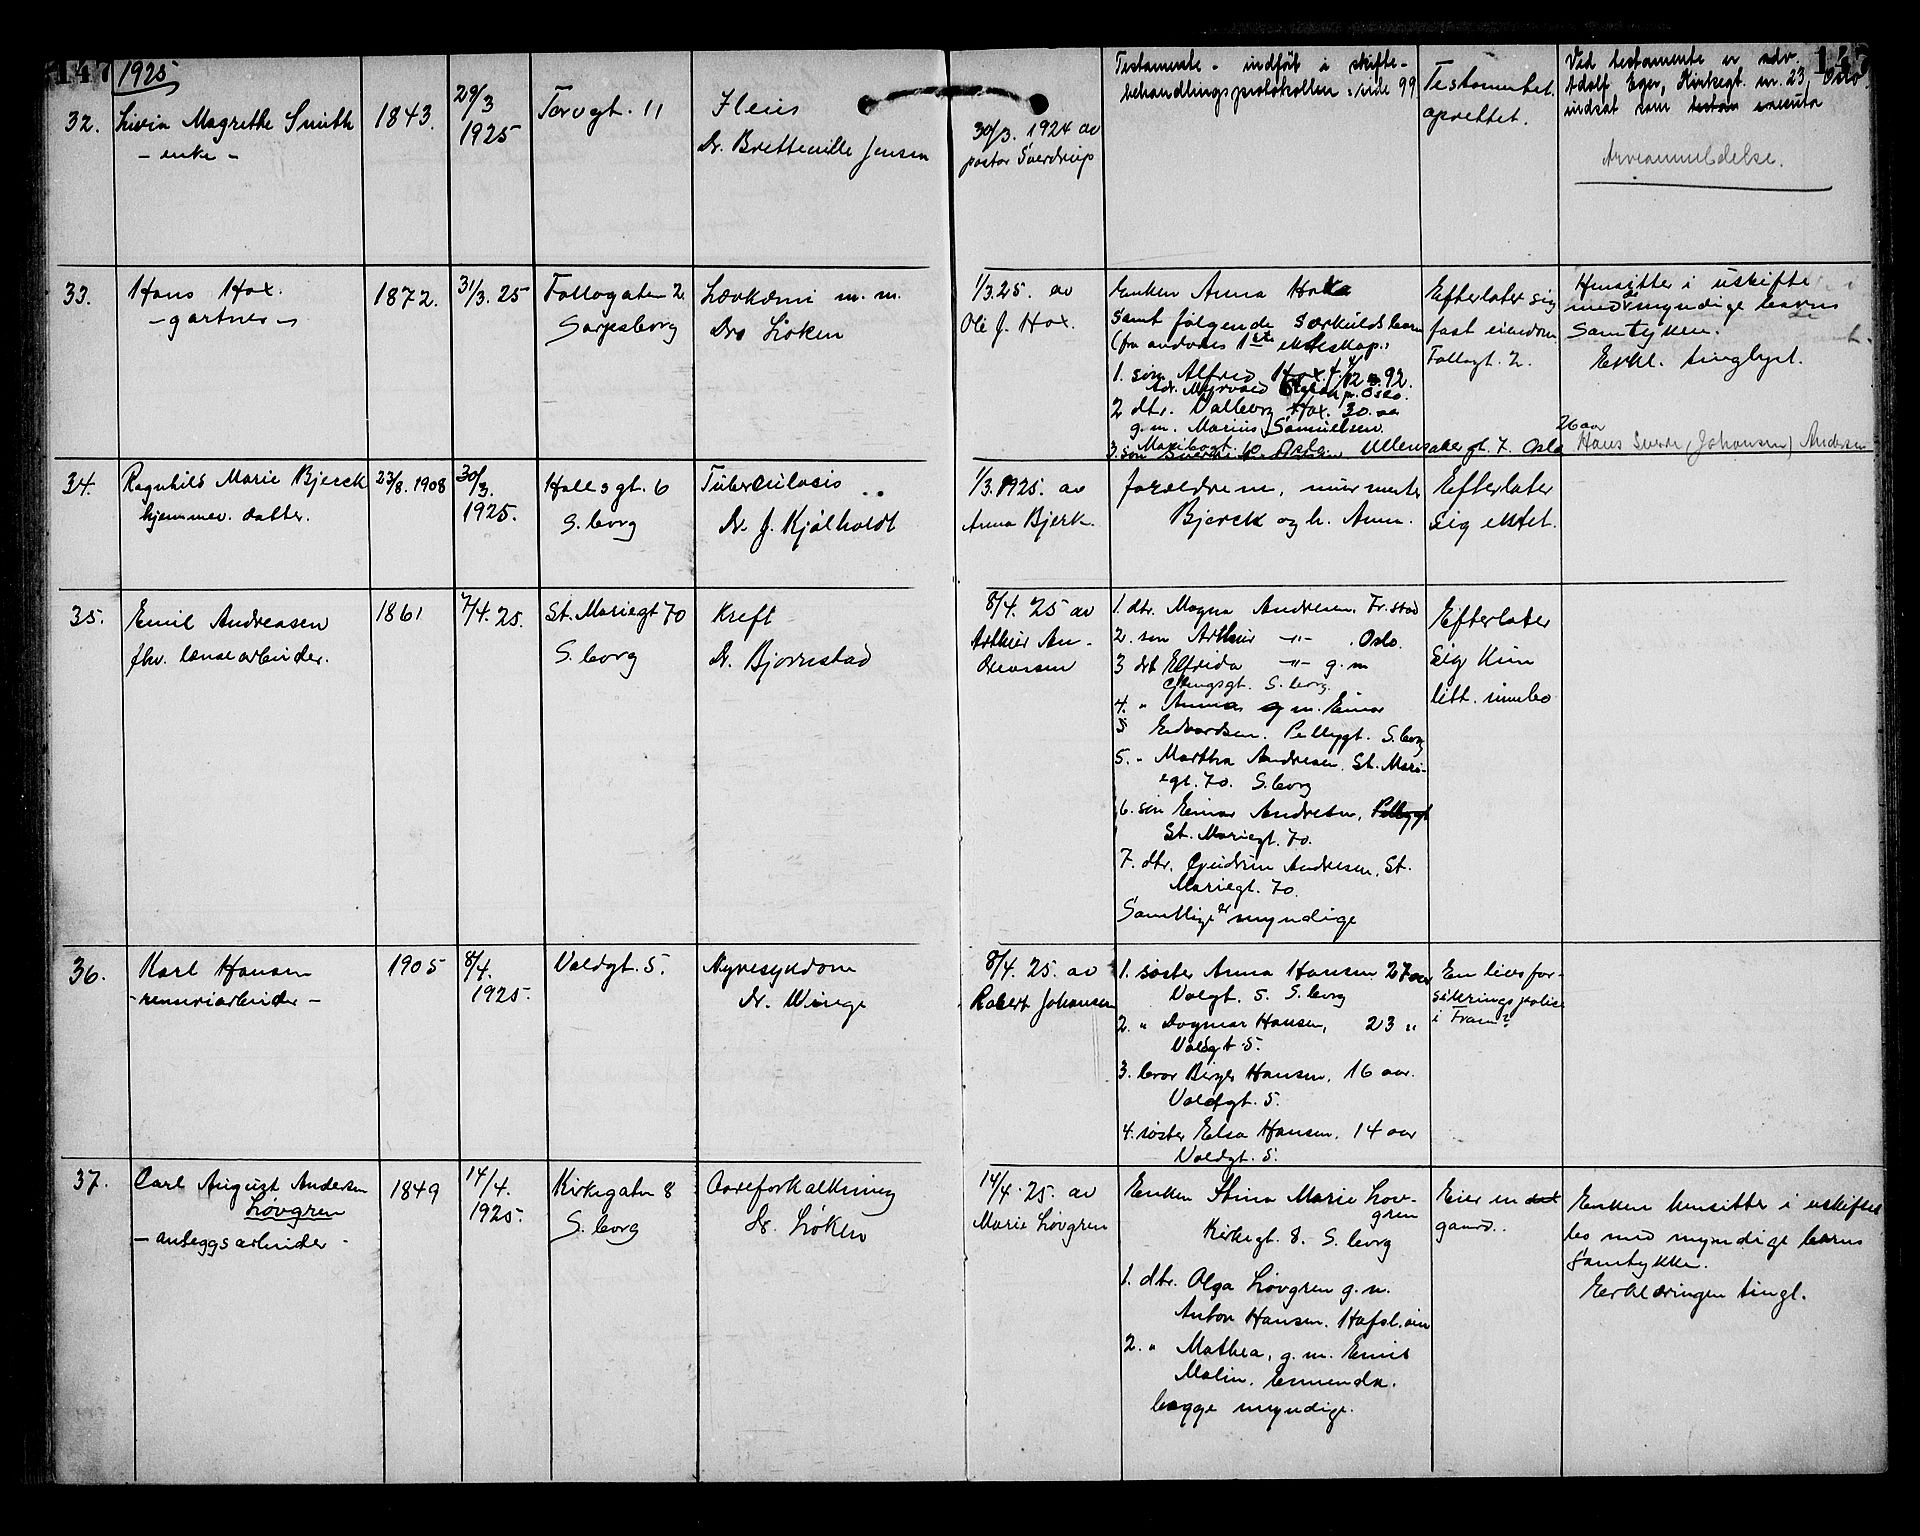 147 1925 147
32. Livia Magrethe Smith
- enke -
1843.
29/3
1925
Torvgt. 11
Ileus
Dr. Bretteville Jensen
30/3. 1924 av
pastor Sverdrup
Testamente - indført i skifte-
behandlingsprotokollen side 99
Testamentet
oprettet.
Ved testamente er adv.
Adolf Eger, Kirkegt. nr. 23, Oslo
indsat som testam executor
Arveanmeldelse.
33. Hans Hox.
- gartner -
1872.
31/3. 25
Follogaten 2.
Sarpsborg
m. m.
Dr. Løken
1/3. 25. av
Ole J. Hox.
Enken Anna Hox
samt følgende særkuldsbarn
(fra avdødes 1ste ekteskap:
1. søn Alfred Hox f. 12 92.
Oslo.
2 dtr. Valborg Hox. 30. aa
g. m. Marius Samuelsen.
Oslo
3. søn Ullensakergt. 7. Oslo
Efterlater sig
fast eiendom
Follogt. 2.
Hensitter i uskifte
med de myndige barns
Samtykke.
Erkl. tinglyst.
26 aar
Hans Sverre (Johansen) Andersen
34. Ragnhild Marie Bjerck
hjemmev. datter.
23/8. 1908
30/3.
1925.
Halls gt. 6
S. borg
Tuberculosis
Dr. J. Kjølholdt
1/3. 1925. av
Anna Bjerk.
forældrene, murmester
Bjerck og h. Anna.
Efterlater
sig intet.
35. Emil Andreasen
fhv. lensearbeider.
1861
7/4. 25.
St. Mariegt 70
S. borg
Kreft
Dr. Bjørnstad
8/4. 25 av
Arthur An-
dreassen
1. dtr. Magna Andresen, Fr.stad
2. søn Arthur -"- . Oslo.
3 dtr Elfrida -"- g. m
S. borg.
4. " Anna g m. Einar
5 Edvardsen. Pellygt. S. borg
5. " Martha Andresen. St. Mari-
egt. 70. S. borg
6. søn Einar Andresen, Pellygt
St. Mariegt. 70.
7. dtr. Gudrun Andresen, St.
Mariegt. 70.
Samtlige er myndige
Efterlater
sig kun
litt. innbo
36. Karl Hansen
- renseriarbeider -
1905
8/4.
1925.
Valdgt. 5.
Nyresygdom
Dr. Winge
8/4. 25. av
Robert Johansen
1. søster Anna Hansen 27 aar
Valgt. 5. S. borg
2. " Dagmar Hansen, 23 "
Valdgt 5.
3. bror Birger Hansen, 16 aar.
Valdgt. 5.
4. søster Elsa Hansen. 14 aar
Valdgt. 5.
En livsfor-
sikringspolice
i Fram?
37. Carl August Andersen
Løvgren
- anleggsarbeider -
1849
14/4.
1925.
Kirkegaten 8
S. borg
Aareforkalkning
Dr. Løken
14/4. 25. av
Marie Løvgren
Enken Stina Marie Løv-
gren
Kirkegt. 8. S. borg
1. dtr. Olga Løvgren g. m.
Anton Hansen. Hafsl.øen
2. " Mathea, g. m. Emil
Malin,
begge myndige.
Eier en
gaard.
Enken hensitter i uskiftet
bo med myndige barns
samtykke.
Erklæringen tingl.